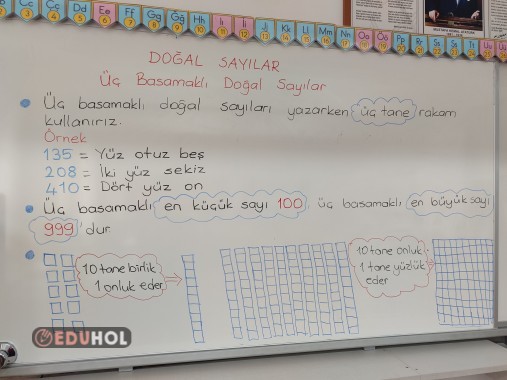 Cc Çç Dd Ee Ff Gg Ğğ Hh Iı İi Jj Kk Ll Mm Nn Oo Öö Pp Rr Ss Şş Tt Uu
DOĞAL SAYILAR
Üç Basamaklı Doğal Sayılar
Üç basamaklı doğal sayıları yazarken üç tane rakam
kullanırız.
Örnek
135 = Yüz otuz beş
208 = İki yüz sekiz
410 = Dört yüz on
Üç basamaklı en küçük sayı 100, üç basamaklı en büyük sayı
999'dur
10 tane birlik
1 onluk eder
10 tane onluk
1 tane yüzlük
eder
EDUHOL